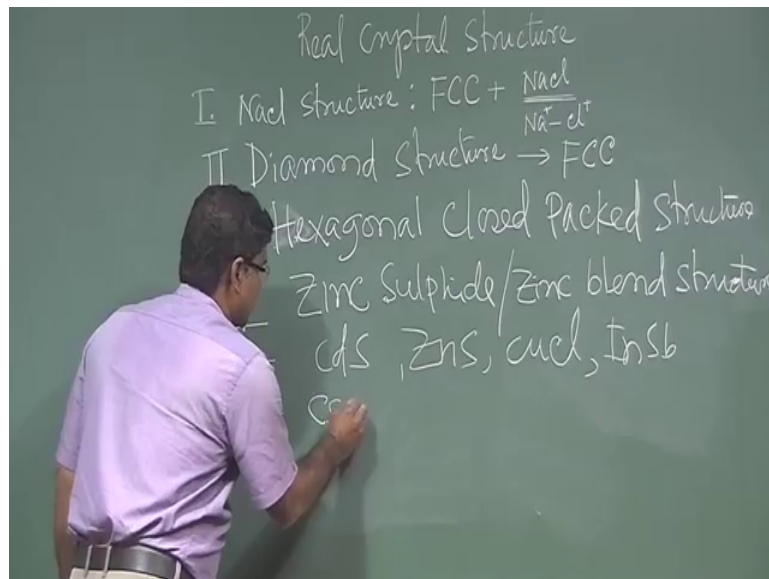 Real Cryptal Structure
I. Nacl Structure : FCC + Nacl
Na⁺-cl⁺
II Diamond Structure → FCC
Hexagonal Closed Packed Structure
Zinc Sulphide/Zinc blend structure
Cds, Zns, cucl, InSb